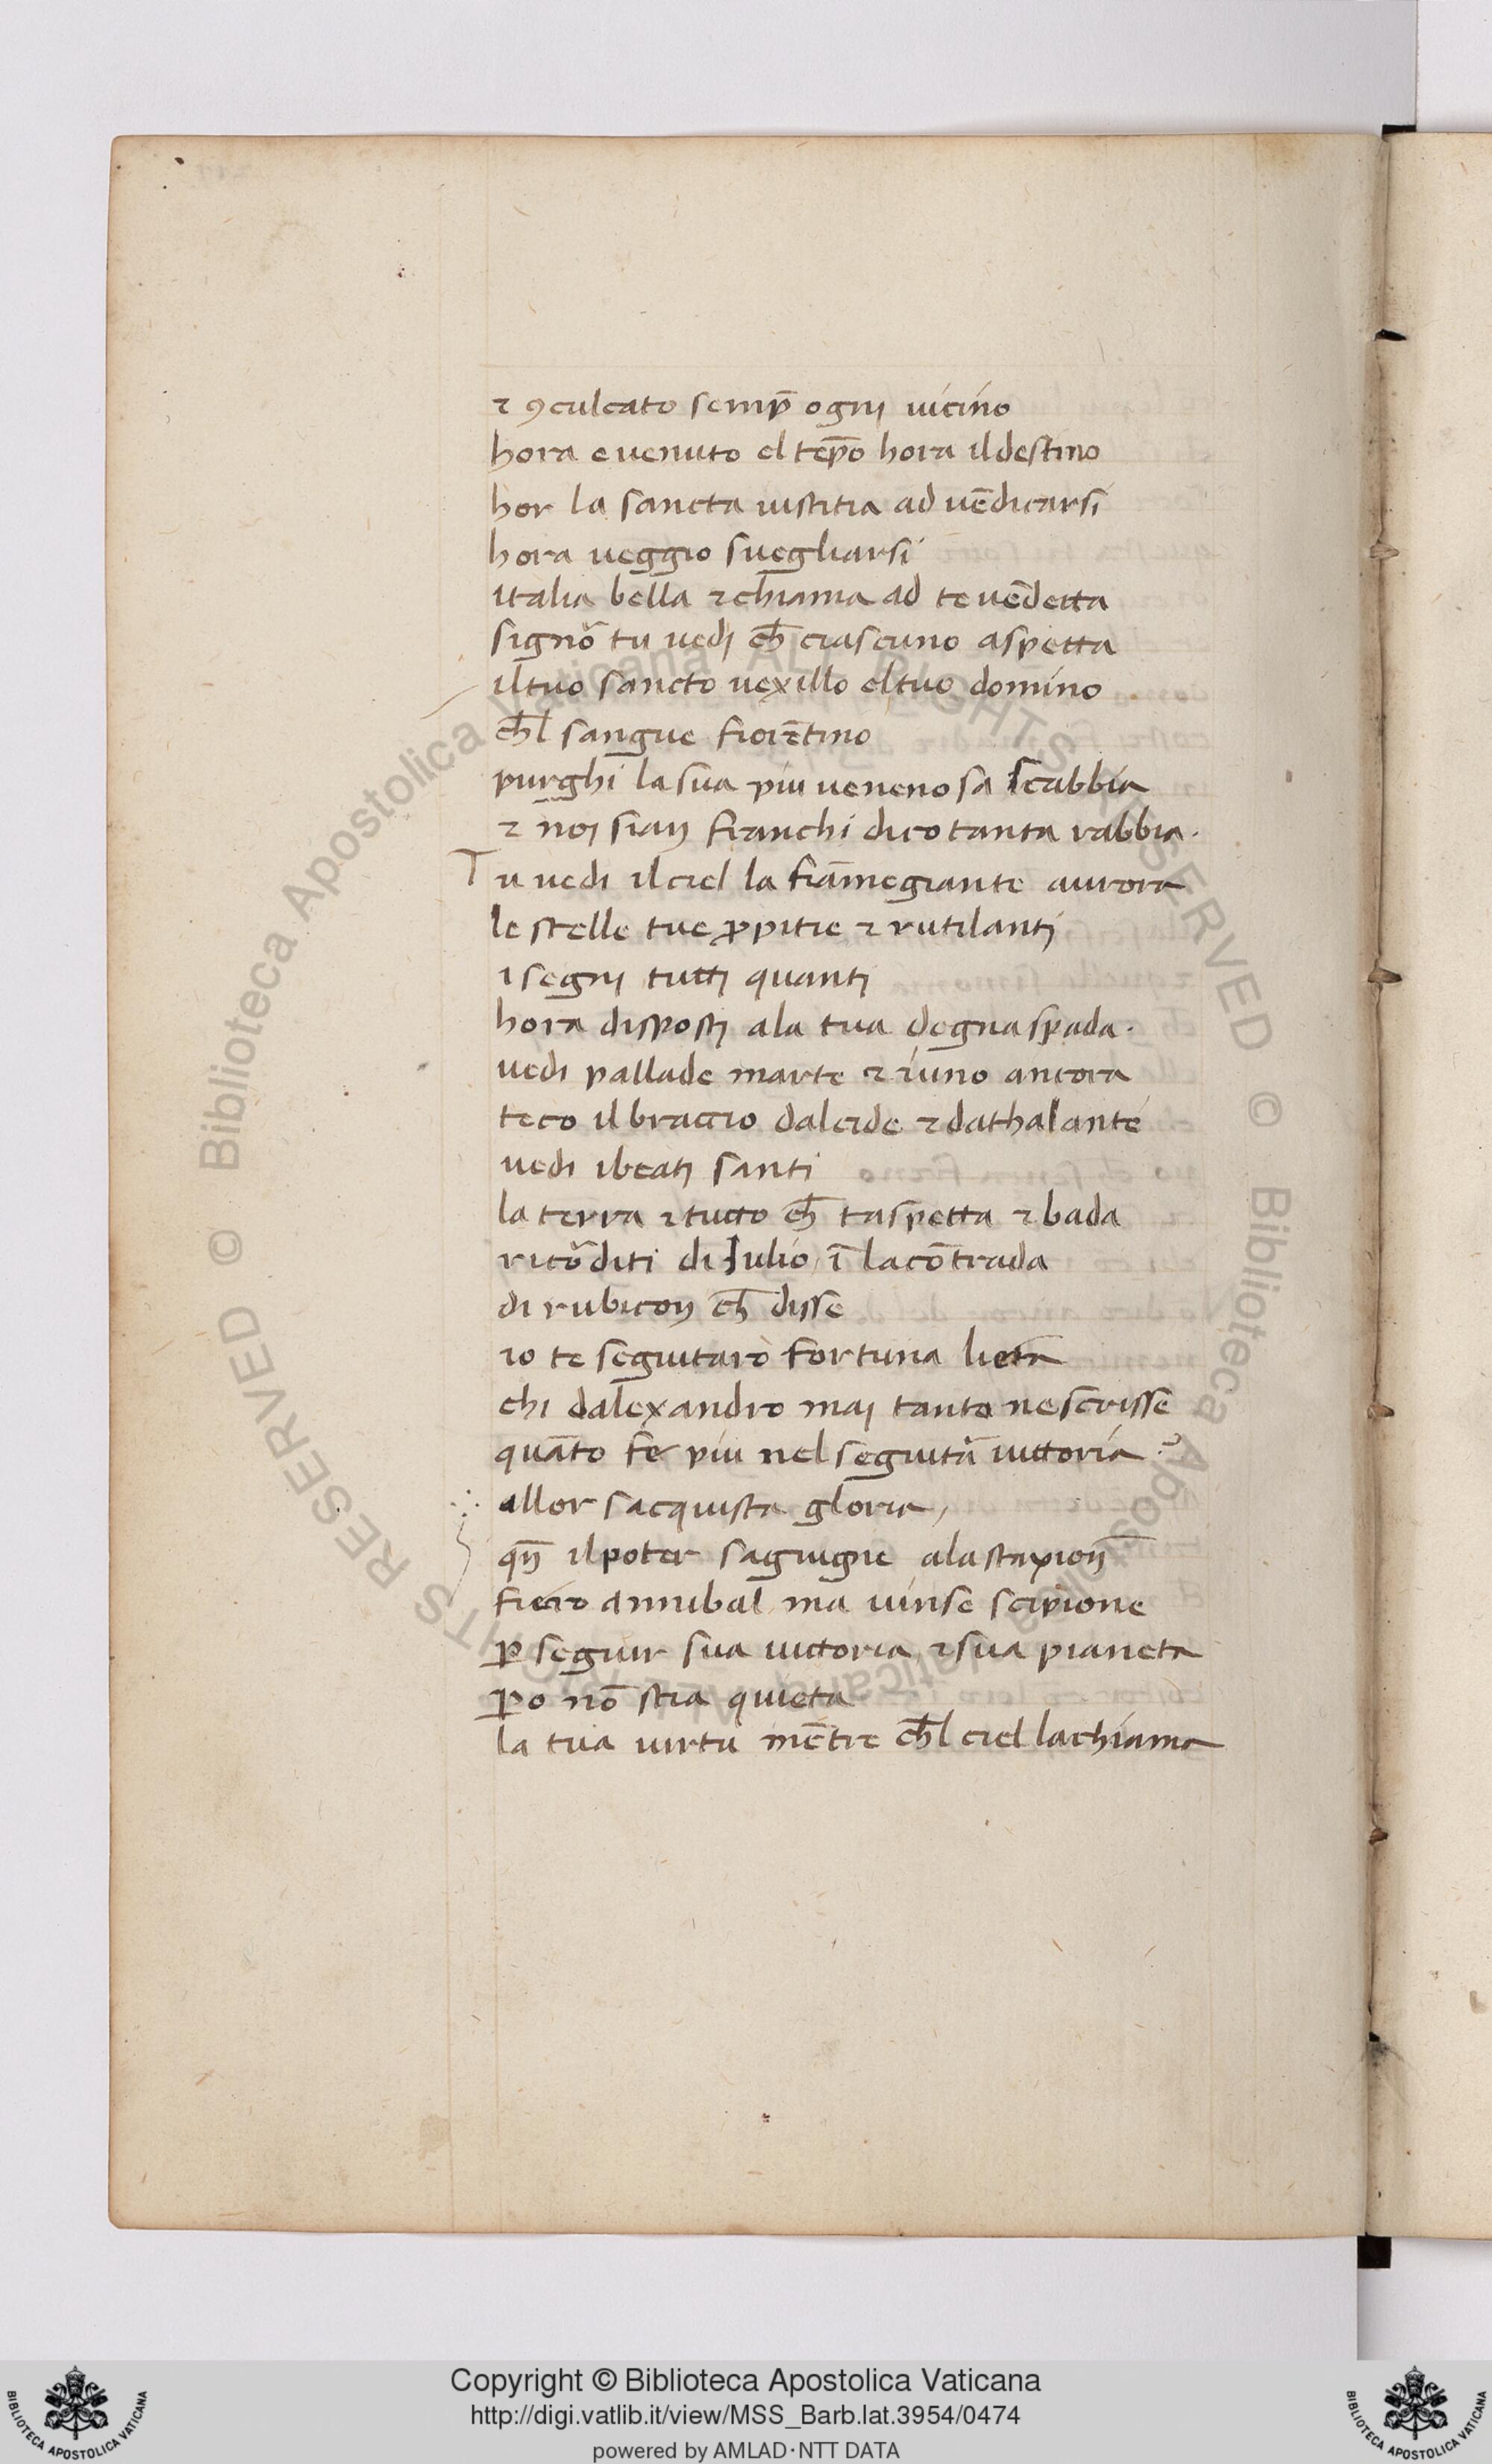 ⁊ ꝯculcato semp̄ ogni uicino
hora e uenuto el tēpo hora il destino
hor la sancta iustitia ad uēdicarsi
hora ueggio suegliarsi
italia bella ⁊ chiama ad te uēdetta
signõ tu uedj ch̄ ciascuno aspetta
il tuo sancto uexillo el tuo domino
ch̄l sangue fiorētino
purghi la sua piu uenenosa scabbia
⁊ noj sian franchi di co tanta rabbia.
Tu uedi il ciel la fiāmegiante aurora
le stelle tue ꝓpitie ⁊ rutilantj
i segni tuttj quantj
hora dispostj a la tua degna spada.
uedi pallade marte ⁊ iuno ancora
teco il braccio dalcide ⁊ dathalante
uedi i beatj santi
la terra ⁊ tutto ch̄ taspetta ⁊ bada
ricõditi di Iulio ī la cōtrada
di rubicon ch̄ disse
io te seguitarò fortuna lieta
chi dalexandro maj tanto ne scrisse
quāto fe piu nel seguitã uittoria?
allor sacquista gloria,
qn̄ il poter sagiugne a la staxion̄
fiero annibal ma uinse scipione
ꝑ seguir sua uittoria ⁊ sua pianeta
ꝑo nō stia quieta
la tua uirtu mētre ch̄l ciel la chiama
Copyright © Biblioteca Apostolica Vaticana
http://digi.vatlib.it/view/MSS_Barb.lat.3954/0474
powered by AMLAD·NTT DATA
BIBLIOTECA APOSTOLICA VATICANA
BIBLIOTECA APOSTOLICA VATICANA
© Biblioteca Apostolica Vaticana ALL RIGHTS RESERVED
© Biblioteca Apostolica Vaticana ALL RIGHTS RESERVED